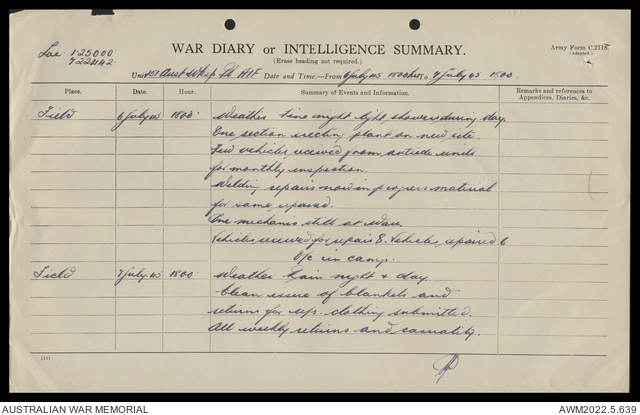 Lae 1-25000
722442
WAR DIARY or INTELLIGENCE SUMMARY.
(Erase heading not required.)
Army Form C.2118.
(Adapted.)
Unit 151 Aust Wksp Pl. AIF Date and Time.—From 6 July 45 1800hrs To 7 July 45 1800.
Place. Date. Hour. Summary of Events and Information. Remarks and references to
Appendices, Diaries, &c.
Field 6 July 45 1800. Weather Fine night light showers during day.
One section erecting plant on new site.
Few vehicles received from outside units
for monthly inspection.
Welding repairs now in progress material
for same received.
One mechanic still at Wau.
Vehicles received for repair 8. Vehicles repaired 6
O/c in camp.
Field 7 July 45 1800. Weather Rain night & day
Clean issue of blankets and
returns for clothing submitted.
All weekly returns and casualty.
(11)
AUSTRALIAN WAR MEMORIAL
AWM2022.5.639